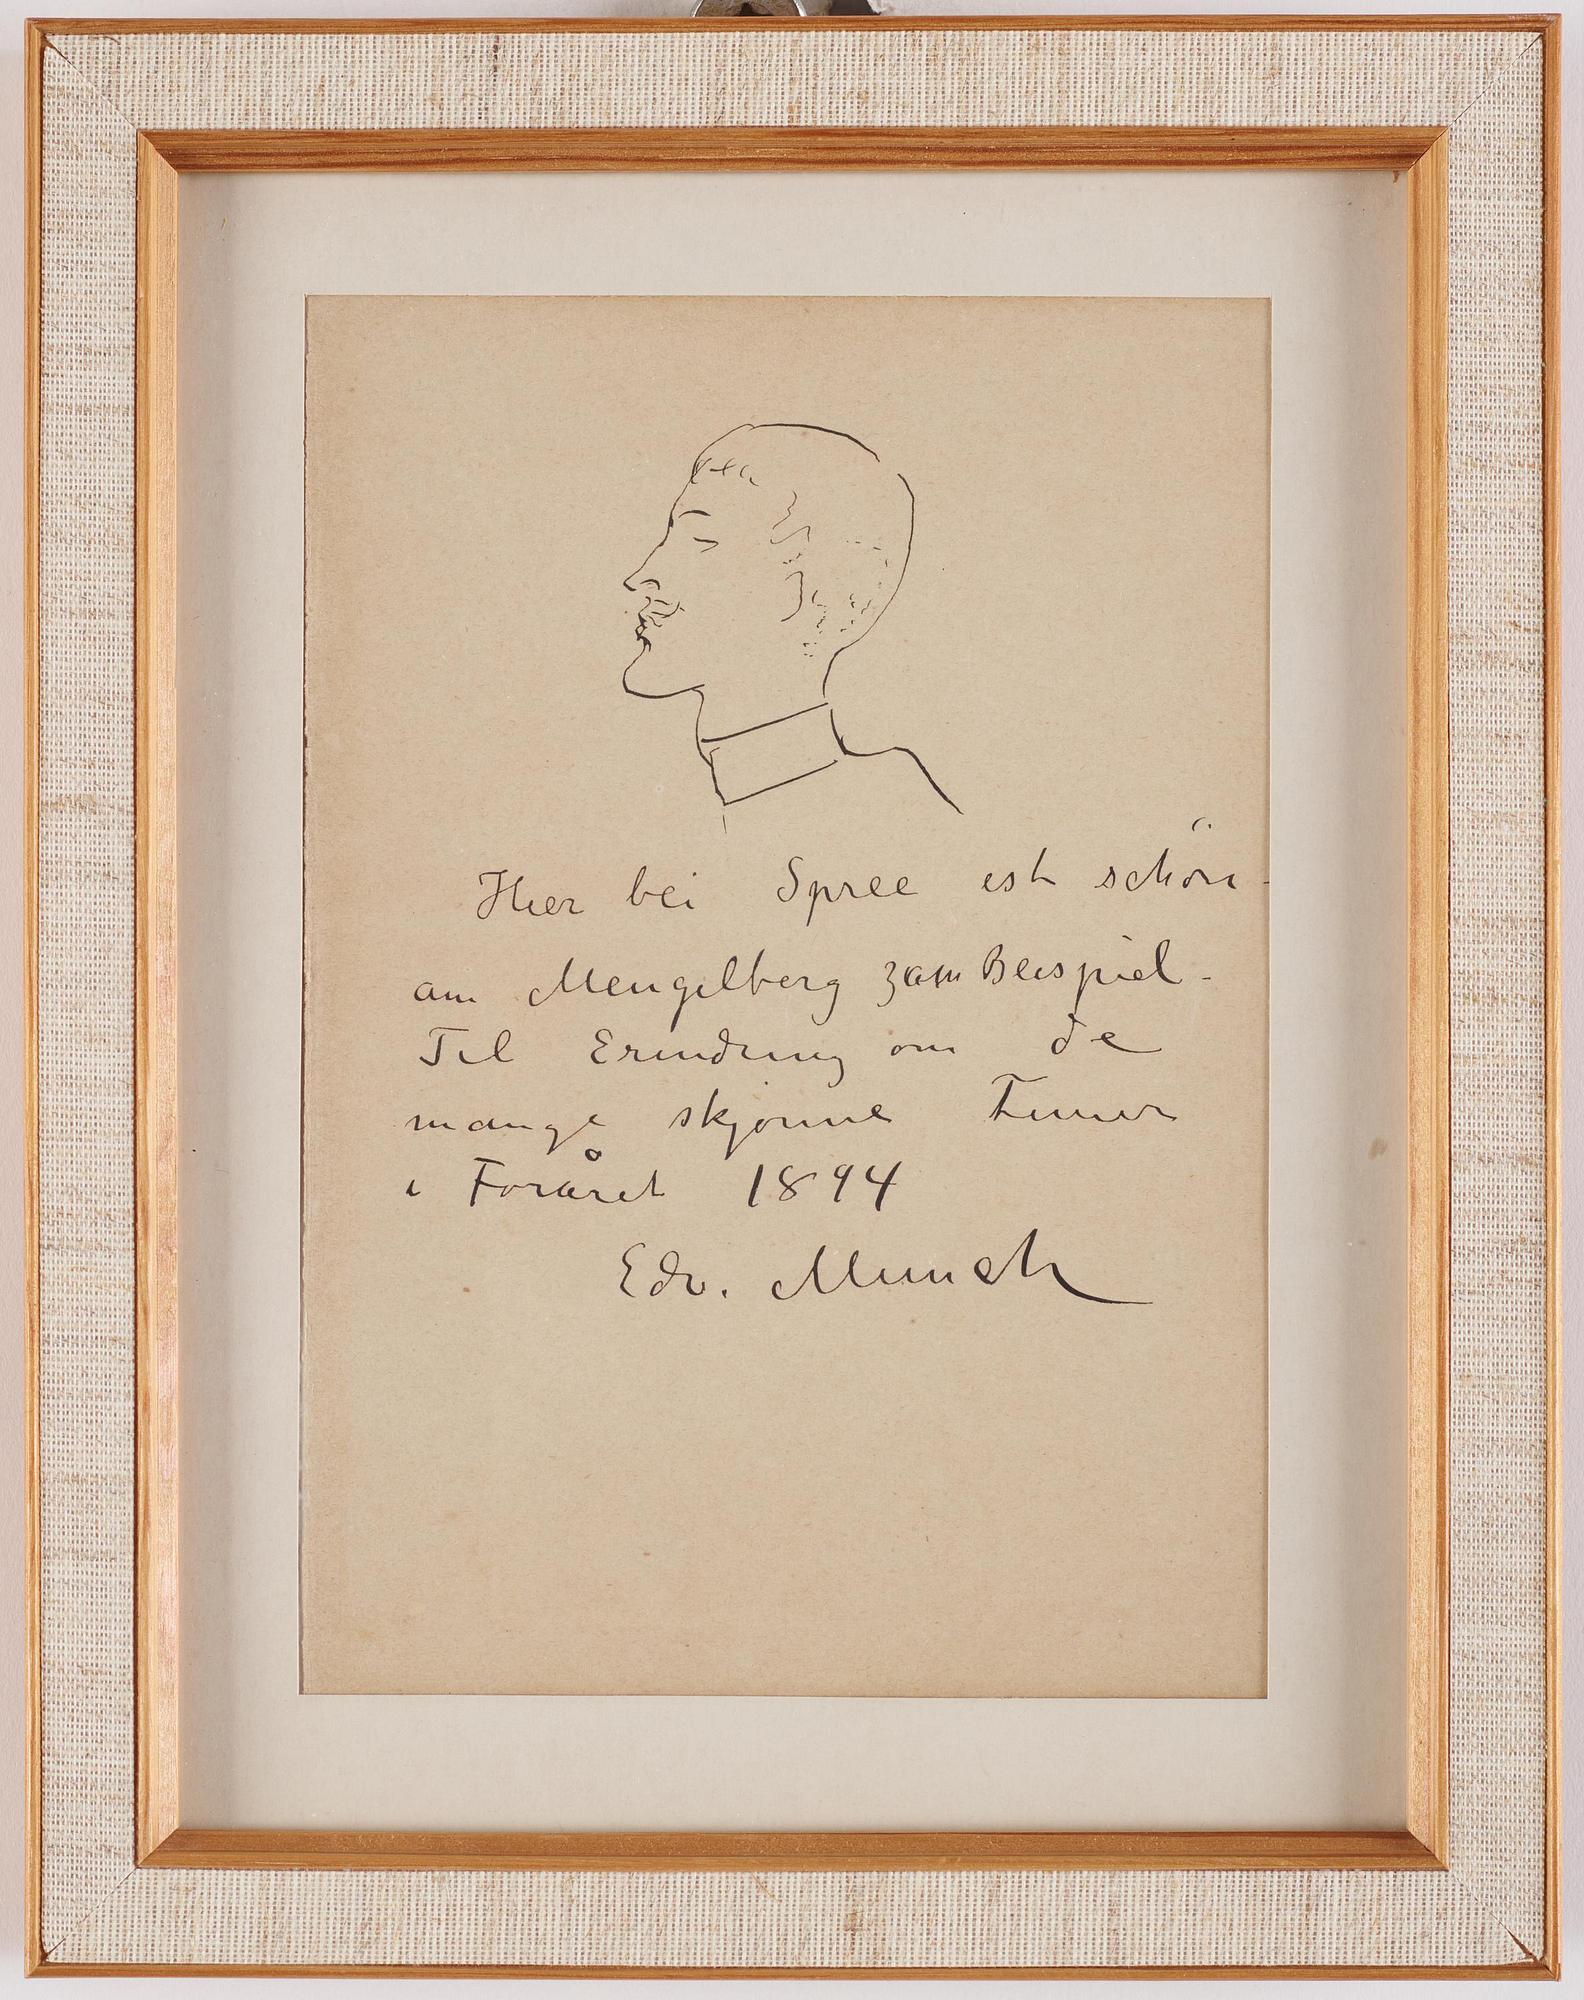 Hier bei Spree ist schön -
am Mengelberg zam Beispiel -
Til Erindring om de
mange skjønne Timer
i Foråret 1894
Edv. Munch